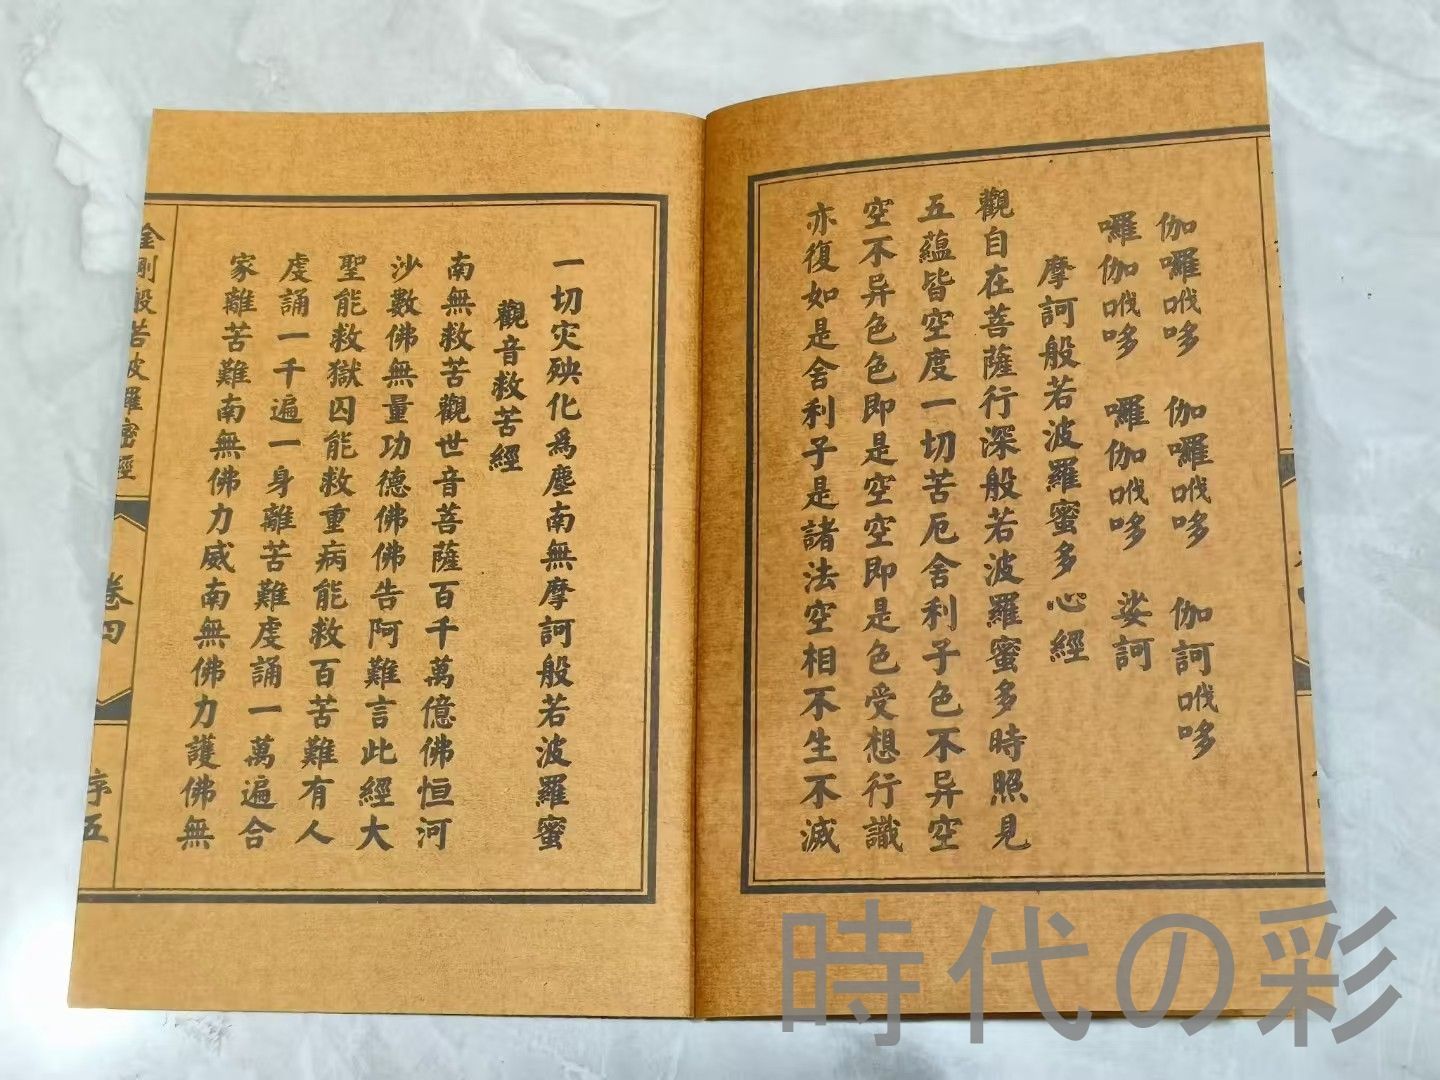 伽囉哦哆　伽囉哦哆　伽訶哦哆
囉伽哦哆　囉伽哦哆　娑訶
摩訶般若波羅蜜多心經
觀自在菩薩行深般若波羅蜜多時照見
五蘊皆空度一切苦厄舍利子色不异空
空不异色色即是空空即是色受想行識
亦復如是舍利子是諸法空相不生不滅
一切灾殃化爲塵南無摩訶般若波羅蜜
觀音救苦經
南無救苦觀世音菩薩百千萬億佛恒河
沙數佛無量功德佛佛告阿難言此經大
聖能救獄囚能救重病能救百苦難有人
虔誦一千遍一身離苦難虔誦一萬遍合
家離苦難南無佛力威南無佛力護佛無
金剛般若波羅密經
卷四
序五
時代の彩